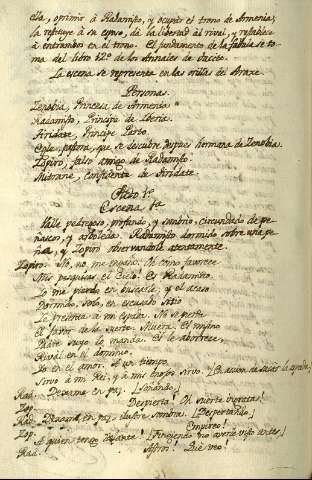 ella, oprimir à Radamisto, y ocupár el trono de Armenia;
la restituye à su esposo, da la libertad al rival, y restablece
à entrambos en el trono. El fundamento de la fabula se to-
ma del libro 12º de los Annales de Tacito.
La escena se representa en las orillas del Araxe.
Personas.
Zenobia, Princesa de Armenia.
Radamisto, Principe de Iberia.
Tiridate, Principe Parto.
Egle, pastora, que se descubre despues hermana de Zenobia.
Zopiro, falso amigo de Radamisto.
Mitrane, confidente de Tiridate.
Acto 1º
Escena 1ª
Valle pedregoso, profundo, y sombrio, circundado de pe-
ñascos, y arboleda. Radamisto dormido sobre una pe-
ña, y Zopiro observandole atentamente.
Zopiro. No, no me engaño. Oh como favorece
Mis pesquisas el Cielo! Es Radamisto.
Yo me pierdo en buscarle; y el acaso
Dormido, solo, en escusado sitio
Le presenta à mi espada. No se pierda
El favor de la suerte. Muera. El mismo
Padre suyo lo manda. El le aborrece,
Rival en el dominio.
Yo en el amor. A un tiempo
Sirvo à mi Rei, y à mis enojos sirvo. [En accion de sacar la espada]
Rad. Dexame en paz. [Soñando]
Zop. Despierta! Oh suerte ingrata!
Rad. Dexame en paz, ilustre sombra. [Despertando]
Zop. Empireo!
A quien tengo delante! [Fingiendo no averle visto antes]
Rad. Astros! Que veo!